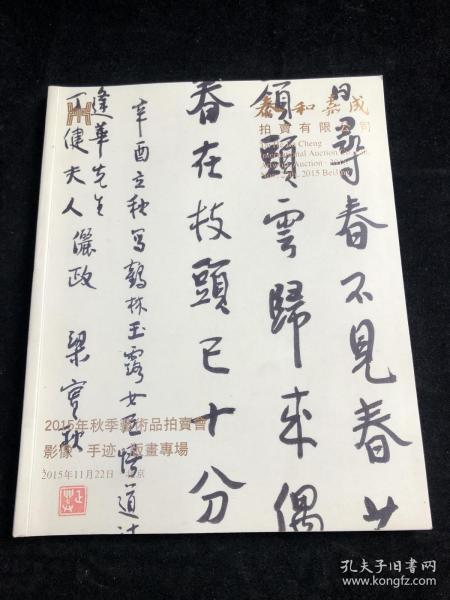 日尋春不見春
領頭雲歸来偶
春在枝頭已十分
辛酉立秋写鶴林玉露女尼悟道诗
逢華先生
丁健夫人儷政
梁實秋
泰和嘉成
拍賣有限公司
2015年秋季藝術品拍賣會
影像·手迹·版畫專場
2015年11月22日 北京
孔夫子旧书网
www.kongfz.com